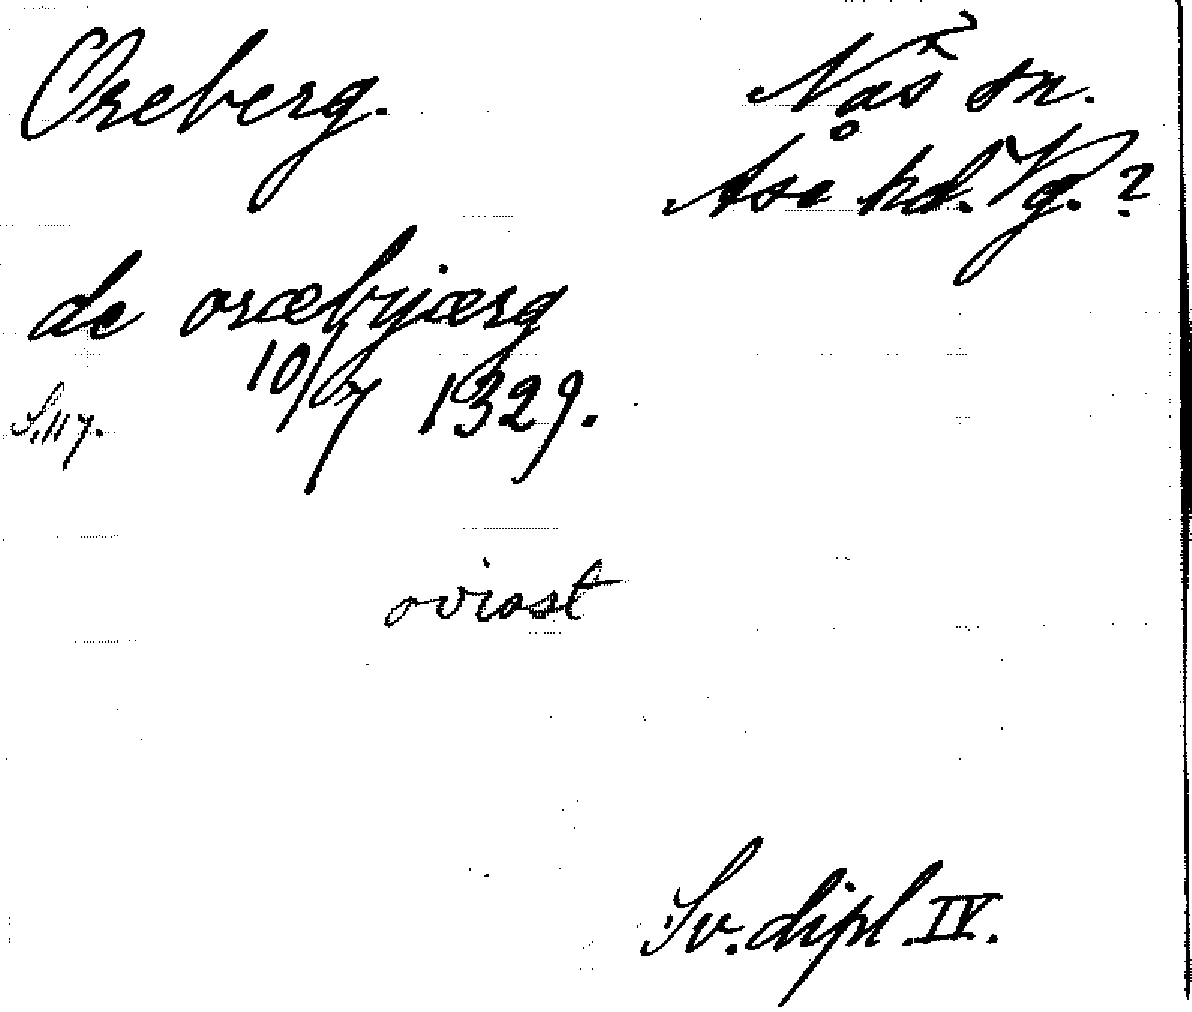 Oreberg.
Näs sn.
Åse hd. Vg.?
de oræbyærg
10/7 1329.
S. 117.
ovisst
Sv. dipl. IV.